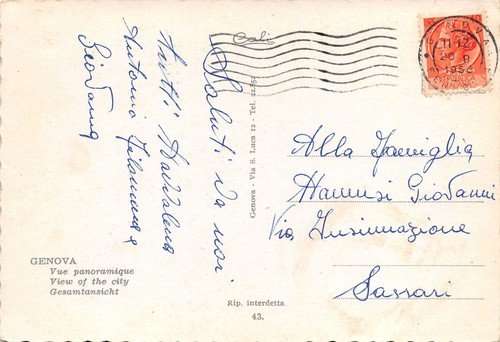 Saluti da noi
tutti Maddalena
Antonio Filomena e
Giovanna
Cali
GENOVA
11-12
20 8
1956
Alla Famiglia
Giovanni
Via Insinuazione
Sassari
Genova - Via S. Luca 12 - Tel. 22.852
GENOVA
Vue panoramique
View of the city
Gesamtansicht
Rip. interdetta
43.